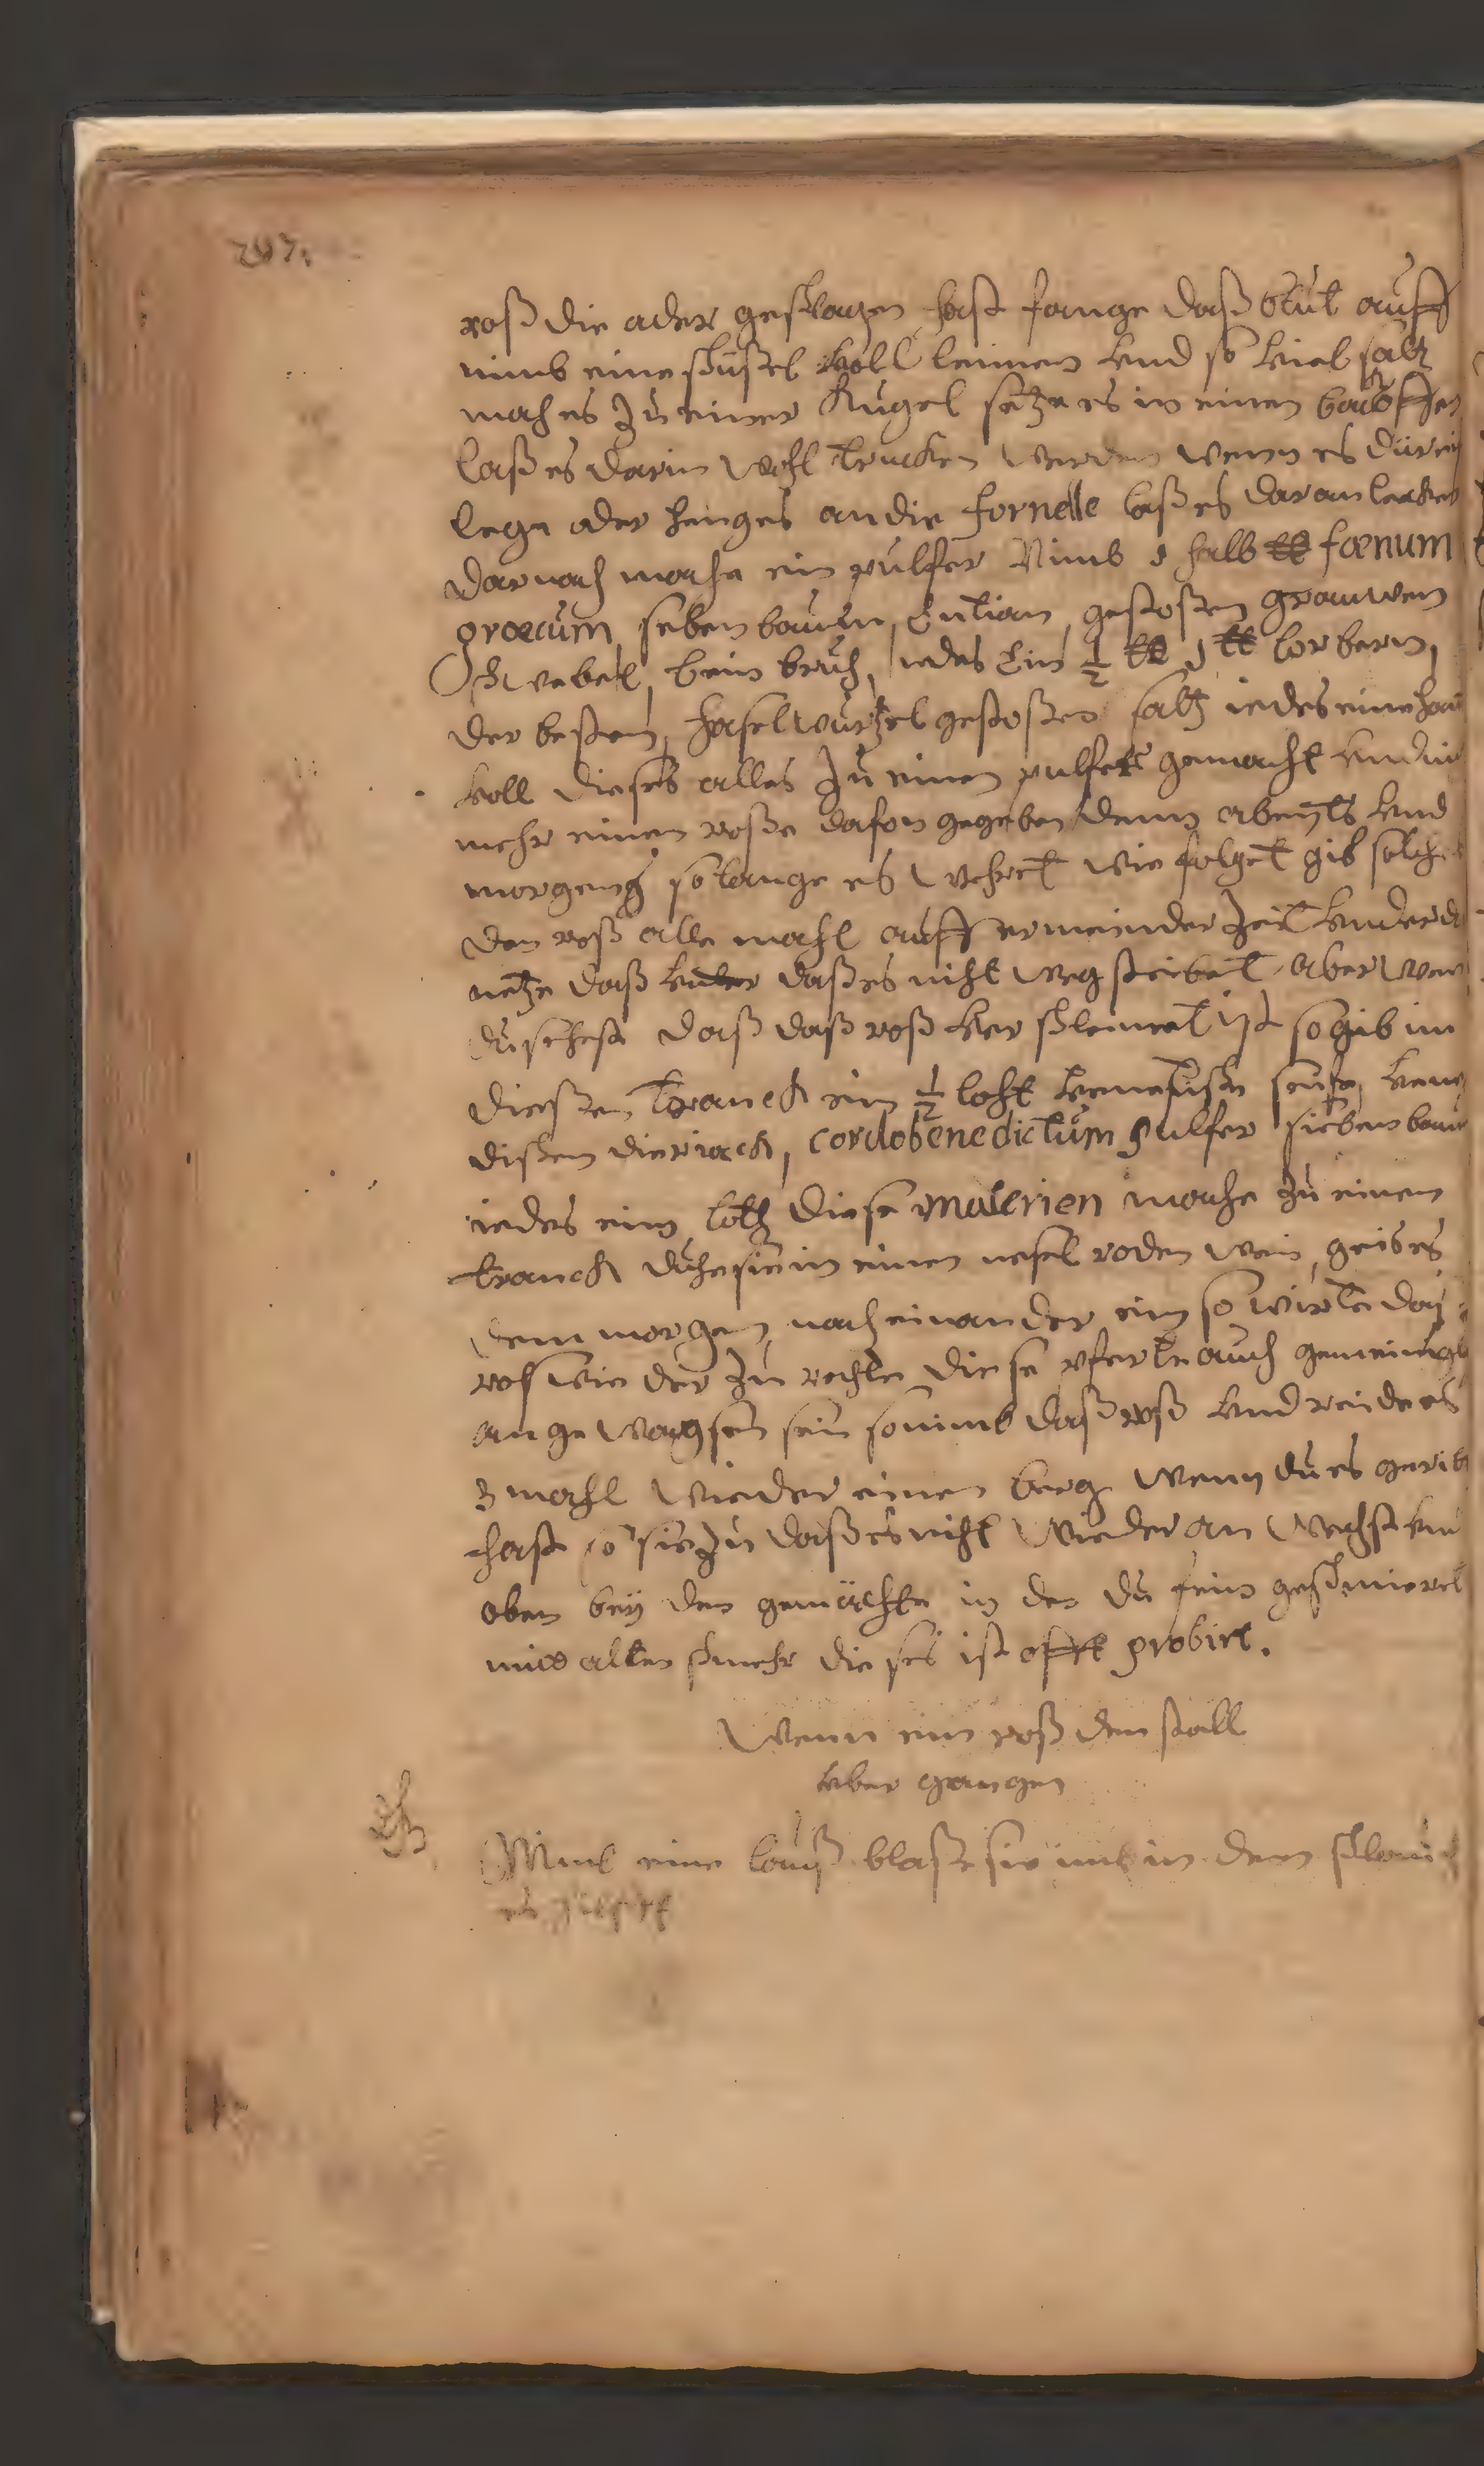 297.
roß die ader geschlagen hast fange daß blut auff
nimb eine schüßel voll leimen vnd so viel saltz
mach es zu einer Kugel setze es in einen backoffen
laß es darin wohl trucken werden wenn es dürr ist
lege oder henges an die fornelle laß es daran lecken
darnach mache ein pulfer Nimb 1 halb ℔ fœnum
grœcum seben baum, Entian, gestoßen grauwen
Schwebel, bein bruch, iedes Ein ½ ℔ 1 ℔ lorbern,
der besten, haselwurtzel gestoßen saltz iedes eine han
voll dieses alles zu einen pulfer gemacht vnd
mehr einen roße dafon gegeben denn abents vnd
morgens so lange es wehret wie folget gib solches
den roß alle mahl auff ermeinder zeit vnder d
netze daß vuter daß es nicht weg steibet, aber wen
du sehest daß daß roß ver schlemet ist so gib im
dießen tranck ein ½ loht venetische seife, vene
dischen dieriack, cordobenedictum pulfer sieben baum
iedes ein loth diese materien mache zu einem
tranck duhe sie in einen nesel roden wein, geib es
dem morgen nach einander ein so wirt daß
roß wie der zu rechte diese pferte auch gemeinigl
an ge wachsen sein so nimb daß roß vnd reide es
3 mahl wieder einen berg wenn du es gerit
hast so sie zu daß es nicht wieder an wechst vn
oben beÿ den gemächte in der du fein geschmieret
mid alten schmehr dieses ist offt probirt.
Wenn ein roß den stall
vber gangen
Niml eine lauß blaße sie im in den schlauch
es hilfft